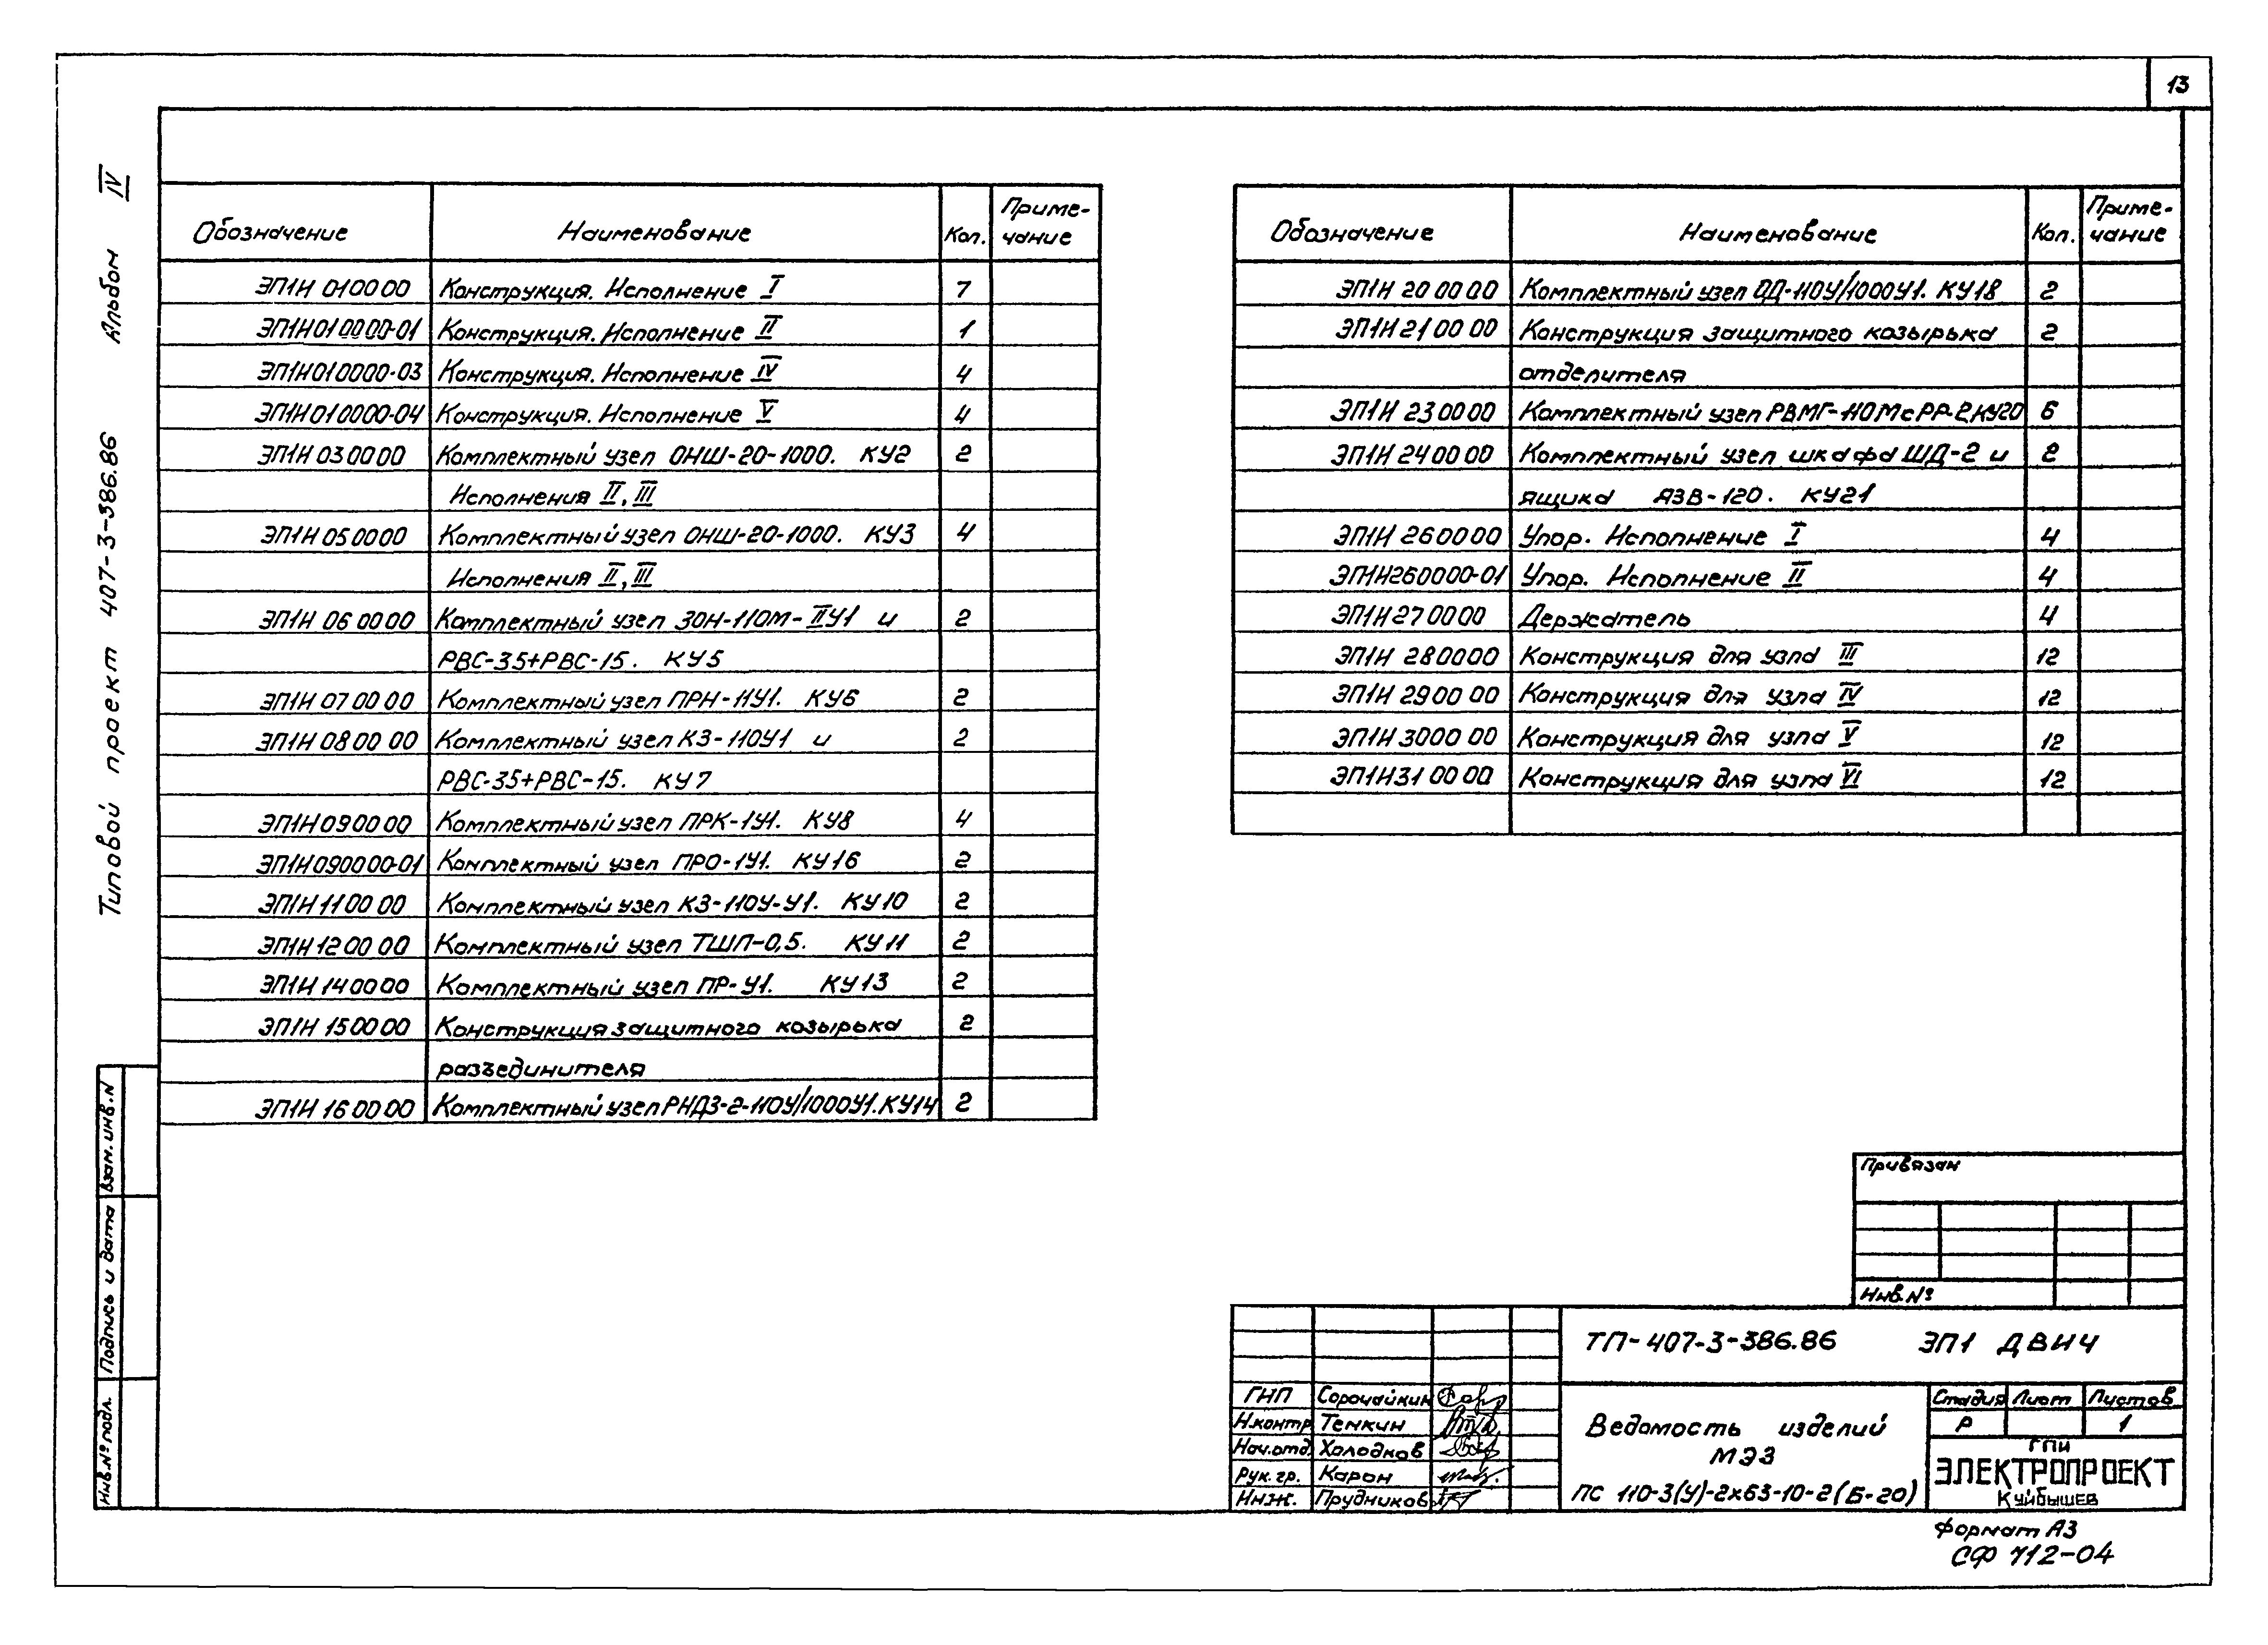 13
Типовой проект 407-3-386.86 Альбом IV
Обозначение Наименование Кол. Приме-
чание
ЭП1И 010000 Конструкция. Исполнение I 7
ЭП1И010000-01 Конструкция. Исполнение II 1
ЭП1И010000-03 Конструкция. Исполнение IV 4
ЭП1И010000-04 Конструкция. Исполнение V 4
ЭП1И 030000 Комплектный узел ОНШ-20-1000. КУ2 2
Исполнения II, III
ЭП1И 050000 Комплектный узел ОНШ-20-1000. КУ3 4
Исполнения II, III
ЭП1И 060000 Комплектный узел ЗОН-110М-IIУ1 и 2
РВС-35+РВС-15. КУ5
ЭП1И 070000 Комплектный узел ПРН-11У1. КУ6 2
ЭП1И 080000 Комплектный узел КЗ-110У1 и 2
РВС-35+РВС-15. КУ7
ЭП1И090000 Комплектный узел ПРК-1У1. КУ8 4
ЭП1И090000-01 Комплектный узел ПРО-1У1. КУ16 2
ЭП1И 110000 Комплектный узел КЗ-110У-У1. КУ10 2
ЭП1И 120000 Комплектный узел ТШЛ-0,5. КУ11 2
ЭП1И 140000 Комплектный узел ПР-У1. КУ13 2
ЭП1И 150000 Конструкция защитного козырька 2
разъединителя
ЭП1И 160000 Комплектный узел РНДЗ-2-110У/1000У1. КУ14 2
Обозначение Наименование Кол. Приме-
чание
ЭП1И 200000 Комплектный узел ОД-110У/1000У1. КУ18 2
ЭП1И 210000 Конструкция защитного козырька 2
отделителя
ЭП1И 230000 Комплектный узел РВМГ-110М с РР-2. КУ20 6
ЭП1И 240000 Комплектный узел шкафа ШД-2 и 2
ящика ЯЗВ-120. КУ21
ЭП1И 260000 Упор. Исполнение I 4
ЭП1И260000-01 Упор. Исполнение II 4
ЭП1И270000 Держатель 4
ЭП1И 280000 Конструкция для узла III 12
ЭП1И 290000 Конструкция для узла IV 12
ЭП1И 300000 Конструкция для узла V 12
ЭП1И310000 Конструкция для узла VI 12
Взам. инв. N
Подпись и дата
Инв. № подл.
Привязан
Инв. №
ТП-407-3-386.86 ЭП1 ДВИЧ
ГИП Сорочайкин
Н.контр Тенкин
Нач.отд. Холодков
Рук. гр. Карон
Инж. Прудников
Ведомость изделий
МЭЗ
ПС 110-3(У)-2х63-10-2(Б-20)
Стадия Лист Листов
Р 1
ГПИ
ЭЛЕКТРОПРОЕКТ
Куйбышев
Формат А3
СФ 712-04